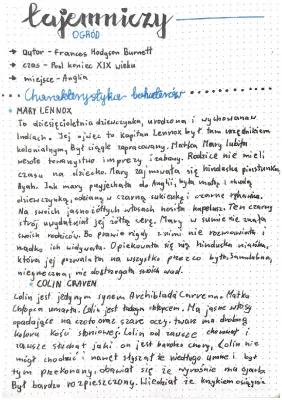 tajemniczy
OGRÓD
→ autor - Frances Hodgson Burnett
→ czas - Pod koniec XIX wieku
→ miejsce - Anglia
Charakterystyka bohaterów
• MARY LENNOX
To dziesięcioletnia dziewczynka, urodzona i wychowana w
Indiach. Jej ojciec to kapitan Lennox był tam urzędnikiem
kolonialnym. Był ciągle zapracowany. Matka Mary lubiła
wesołe towarzystwo imprezy i zabawy. Rodzice nie mieli
czasu na dziecko. Mary zajmowała się hinduska piastunka
Ayah. Jak mary przyjechała do Anglii, była małą, chudą
dziewczynką, odzianą w czarną sukienkę i czarne
Na swoich jasnożółtych włosach nosiła kapelusz. Ten czarny
strój uwydatniał jej żółtą cerę. Mary w sumie nie znała
swoich rodziców. Bo prawie nigdy z nimi nie rozmawiała i
rzadko ich widywała. Opiekowała się nią hinduska niańka,
która jej pozwalała na wszystko przez co była samolubna,
niegrzeczna, nie dostrzegała swoich wad.
• COLIN CRAVEN
Colin jest jedynym synem Archibalda Cravena. Matka
chłopca umarła. Colin jest ładnym chłopcem. Ma jasne włosy
opadające na czoło oraz szare oczy, twarz ma drobną
koloru kości słoniowej. Colin od zawsze chorował i
zawsze słuchał jaki on jest bardzo chory, Colin nie
mógł chodzić i nawet słyszał że niedługo umrze i był
tym przekonany, obawiał się że wyrośnie mu garb.
Był bardzo rozpieszczony. Wiedział że krzykiem osiągnie